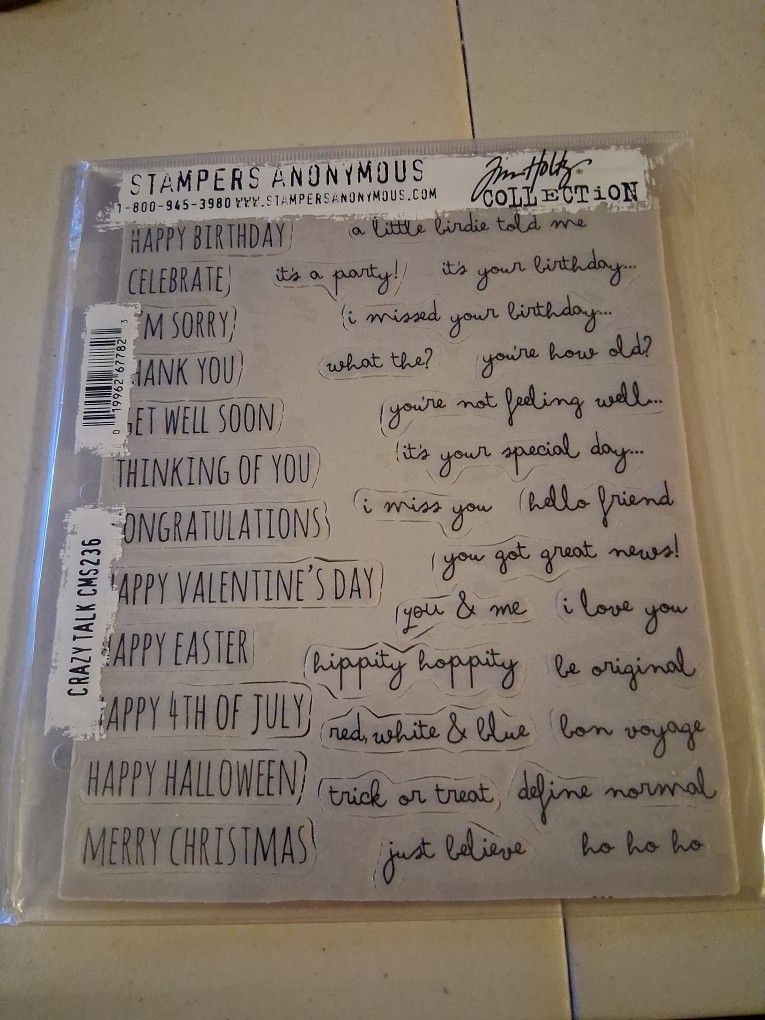 STAMPERS ANONYMOUS
1-800-945-3980 WWW.STAMPERSANONYMOUS.COM
Tim Holtz®
COLLECTiON
HAPPY BIRTHDAY a little birdie told me
CELEBRATE it's a party! it's your birthday...
I'M SORRY i missed your birthday...
HANK YOU what the? you're how old?
GET WELL SOON you're not feeling well...
THINKING OF YOU it's your special day...
ONGRATULATIONS i miss you hello friend
you got great news!
APPY VALENTINE'S DAY you & me i love you
APPY EASTER hippity hoppity be original
APPY 4TH OF JULY red, white & blue bon voyage
HAPPY HALLOWEEN trick or treat define normal
MERRY CHRISTMAS just believe ho ho ho
0 19962 67782 3
CRAZY TALK CMS236